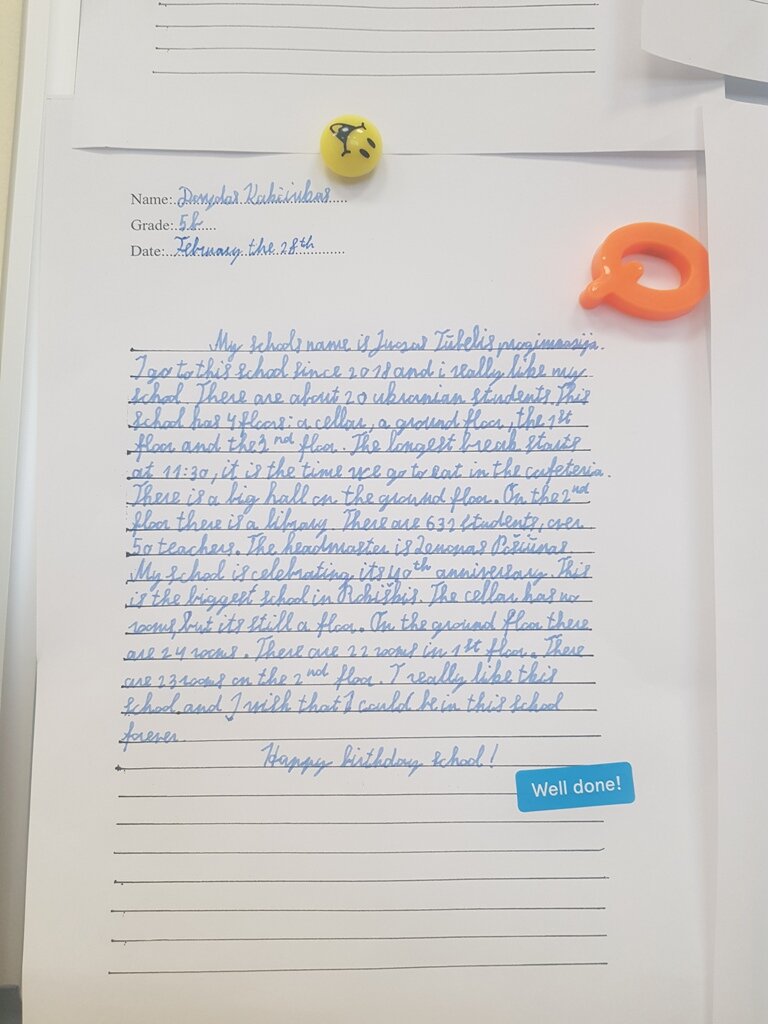 Name: Dovydas Kakčiukas
Grade: 5b
Date: February the 28th
My schools name is Juozas Tūbelis progimnasija.
I go to this school since 2018 and i really like my
school. There are about 20 ukranian students. This
school has 4 floors: a cellar, a ground floor, the 1st
floor and the 2nd floor. The longest break starts
at 11:30, it is the time we go to eat in the cafeteria.
There is a big hall on the ground floor. On the 2nd
floor there is a library. There are 632 students, over
50 teachers. The headmaster is Zenonas Pošiūnas.
My school is celebrating its 40th anniversary. This
is the biggest school in Rokiškis. The cellar has no
rooms, but its still a floor. On the ground floor there
are 24 rooms. There are 22 rooms in 1st floor. There
are 23 rooms on the 2nd floor. I really like this
school and I wish that I could be in this school
forever.
Happy birthday school!
Well done!